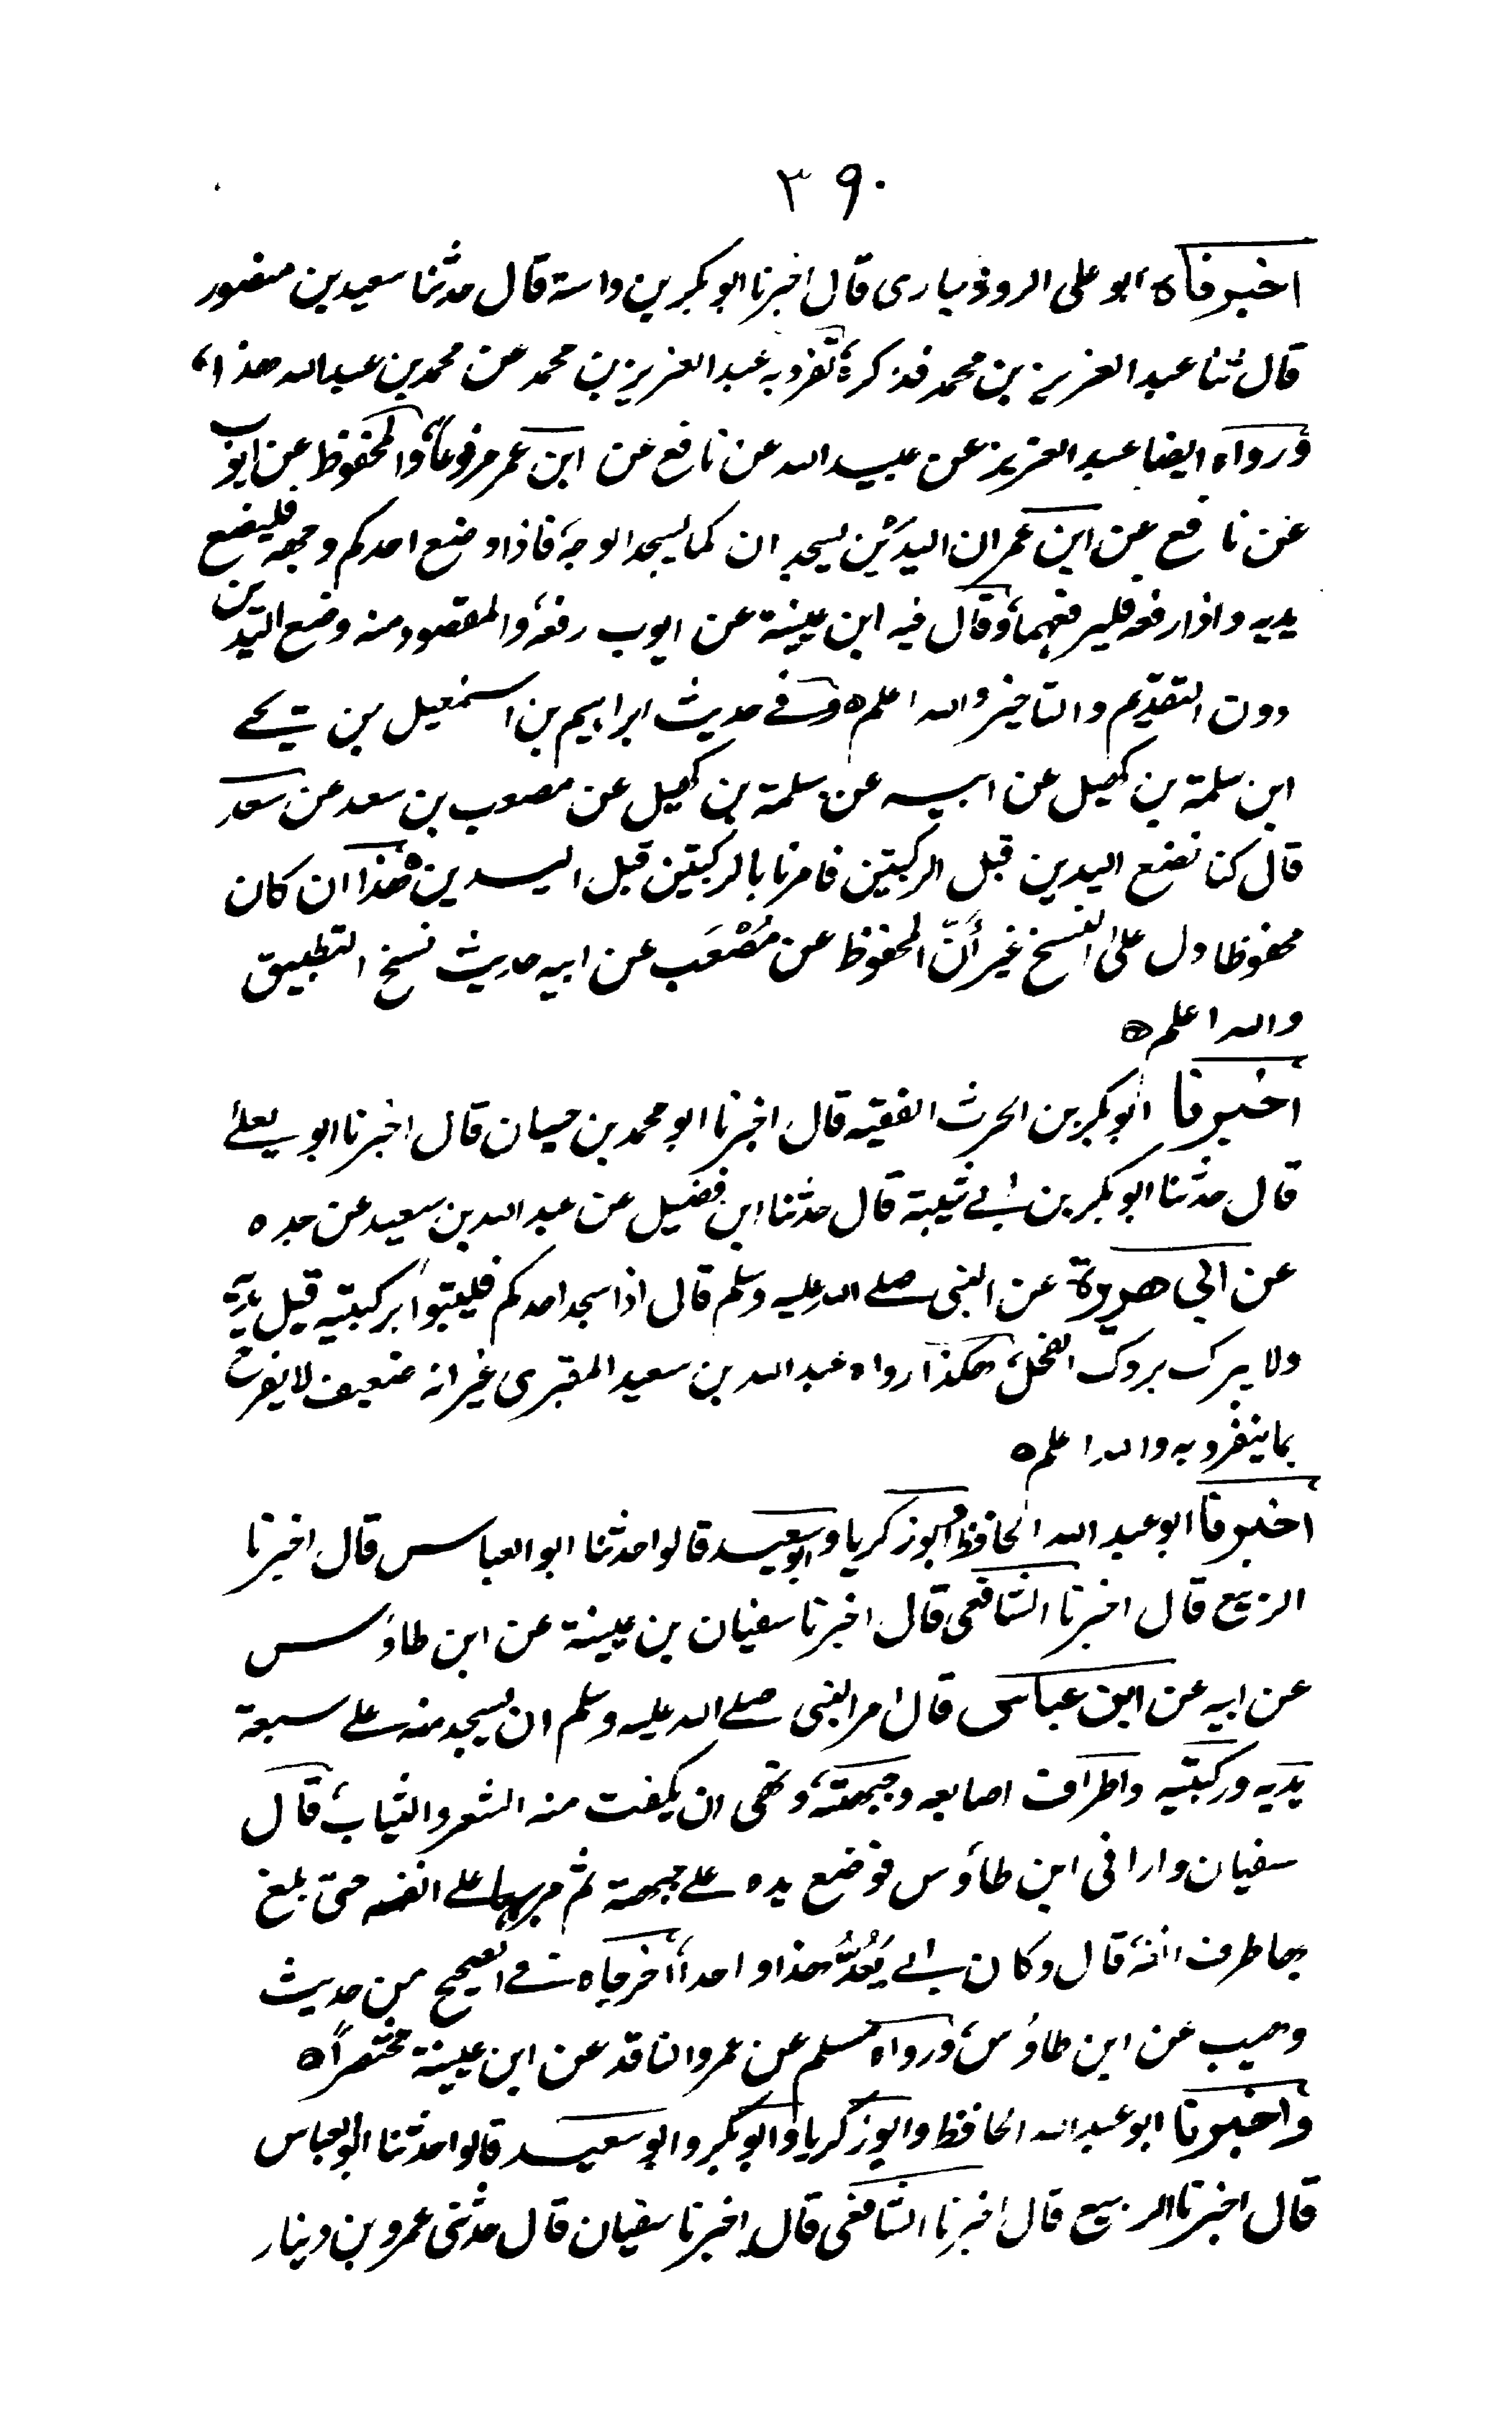 ٣٩٠
اخبرناه ابو على الروذبارى قال اخبرنا ابو بكر بن داسة قال حدثنا سعيد بن منصور
قال ثنا عبد العزيز بن محمد فذكره، تفرد به عبد العزيز بن محمد عن محمد بن عبد الله هذا،
ورواه ايضا عبد العزيز عن عبيد الله عن نافع عن ابن عمر مرفوعاً، والمحفوظ عن ايوب
عن نافع عن ابن عمر ان اليدين يسجدان كما يسجد الوجه فاذا وضع احدكم وجهه فليضع
يديه واذا رفعه فليرفعهما، وقال فيه ابن عيينة عن ايوب رفعه، والمقصود منه وضع اليدين
دون التقديم والتاخير والله اعلم ه وفي حديث ابراهيم بن اسمعيل بن يحيى
ابن سلمة بن كهيل عن ابيه عن سلمة بن كهيل عن مصعب بن سعد عن سعد
قال كنا نضع اليدين قبل الركبتين فامرنا بالركبتين قبل اليدين ه هذا ان كان
محفوظا دل على النسخ غير أنّ المحفوظ عن مُصْعَب عن ابيه حديث نسخ التطبيق
والله اعلم ه
اخبرنا ابو بكر بن الحرث الفقيه قال اخبرنا ابو محمد بن حيان قال اخبرنا ابو يعلى
قال حدثنا ابو بكر بن ابي شيبة قال حدثنا ابن فضيل عن عبد الله بن سعيد عن جده
عن ابي هريرة عن النبى صلے الله عليه وسلم قال اذا سجد احدكم فليبتدأ بركبتيه قبل يديه
ولا يبرك بروك الفحل، هكذا رواه عبد الله بن سعيد المقبرى غير انه ضعيف لا يفرح
بما ينفرد به والله اعلم ه
اخبرنا ابو عبد الله الحافظ وابو زكريا وابو سعيد قالوا حدثنا ابو العباس قال اخبرنا
الربيع قال اخبرنا الشافعى قال اخبرنا سفيان بن عيينة عن ابن طاؤس
عن ابيه عن ابن عباس قال امر النبى صلے الله عليه وسلم ان يسجد منه على سبعة
يديه وركبتيه واطراف اصابعه وجبهته، ونهى ان يكفت منه الشعر والثياب، قال
سفيان وارانى ابن طاؤس فوضع يده على جبهته ثم مر بها على انفه حتى بلغ
بها طرف انفه، قال وكان ابي يَعُدُّ هذا واحدا، اخرجاه في الصحيح من حديث
وهيب عن ابن طاؤس، ورواه مسلم عن عمرو الناقد عن ابن عيينة مختصراً ه
واخبرنا ابو عبد الله الحافظ وابو زكريا وابو بكر وابو سعيد قالوا حدثنا ابو العباس
قال اخبرنا الربيع قال اخبرنا الشافعى قال اخبرنا سفيان قال حدثنى عمرو بن دينار